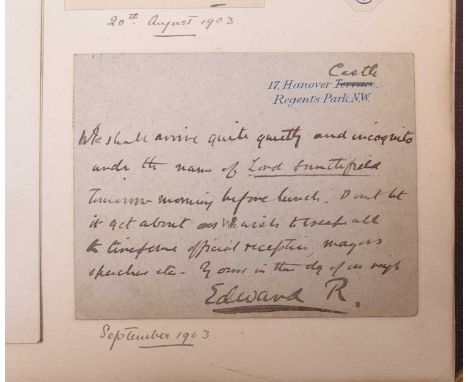 20th August 1903.
Castle
17, Hanover Terrace,
Regent's Park. N.W.
We shall arrive quite quietly and incognito
under the name of Lord
tomorrow morning before lunch. Don't let
it get about as We wish to escape all
the tiresome official reception, mayors
speeches etc. Yours in the
Edward R.
September 1903.